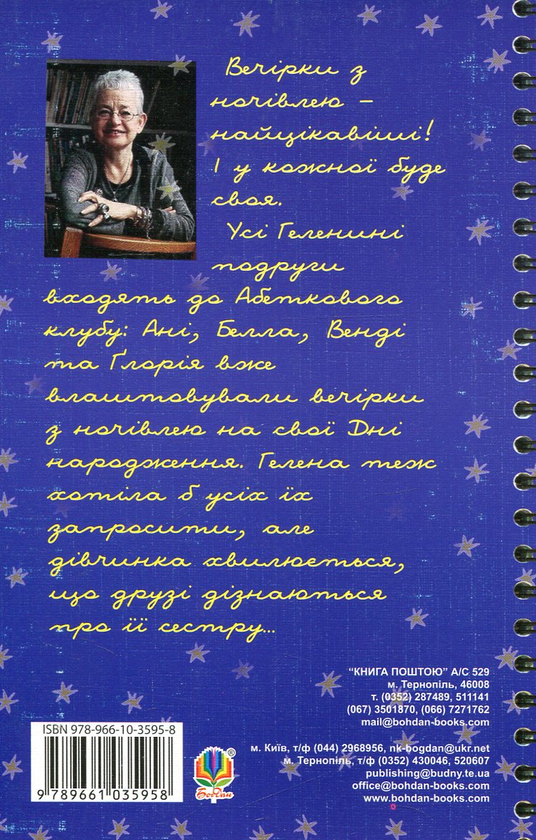 Вечірки з
ночівлею –
найцікавіші!
І у кожної буде
своя.
Усі Геленині
подруги
входять до Абеткового
клубу: Ані, Белла, Венді
та Ґлорія вже
влаштовували вечірки
з ночівлею на свої Дні
народження. Гелена теж
хотіла б усіх їх
запросити, але
дівчинка хвилюється,
що друзі дізнаються
про її сестру...
"КНИГА ПОШТОЮ" А/С 529
м. Тернопіль, 46008
т. (0352) 287489, 511141
(067) 3501870, (066) 7271762
mail@bohdan-books.com
ISBN 978-966-10-3595-8
9 789661 035958
Богдан
®
м. Київ, т/ф (044) 2968956, nk-bogdan@ukr.net
м. Тернопіль, т/ф (0352) 430046, 520607
publishing@budny.te.ua
office@bohdan-books.com
www.bohdan-books.com